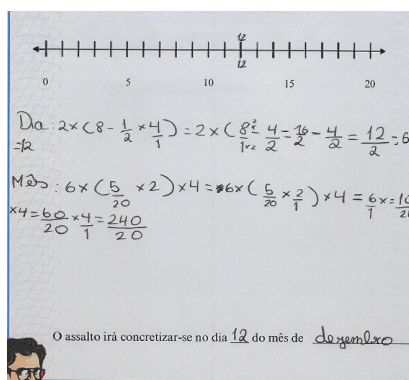 12
12
0 5 10 15 20
Dia: 2×(8 - 1/2 × 4/1) = 2×(8/1 ×2/×2 - 4/2 = 16/2 - 4/2 = 12/2 = 6
=12
Mês: 6×(5/20 ×2)×4 = 6×(5/20 × 2/1)×4 = 6/1 × = 10/20
×4 = 60/20 × 4/1 = 240/20
O assalto irá concretizar-se no dia 12 do mês de dezembro